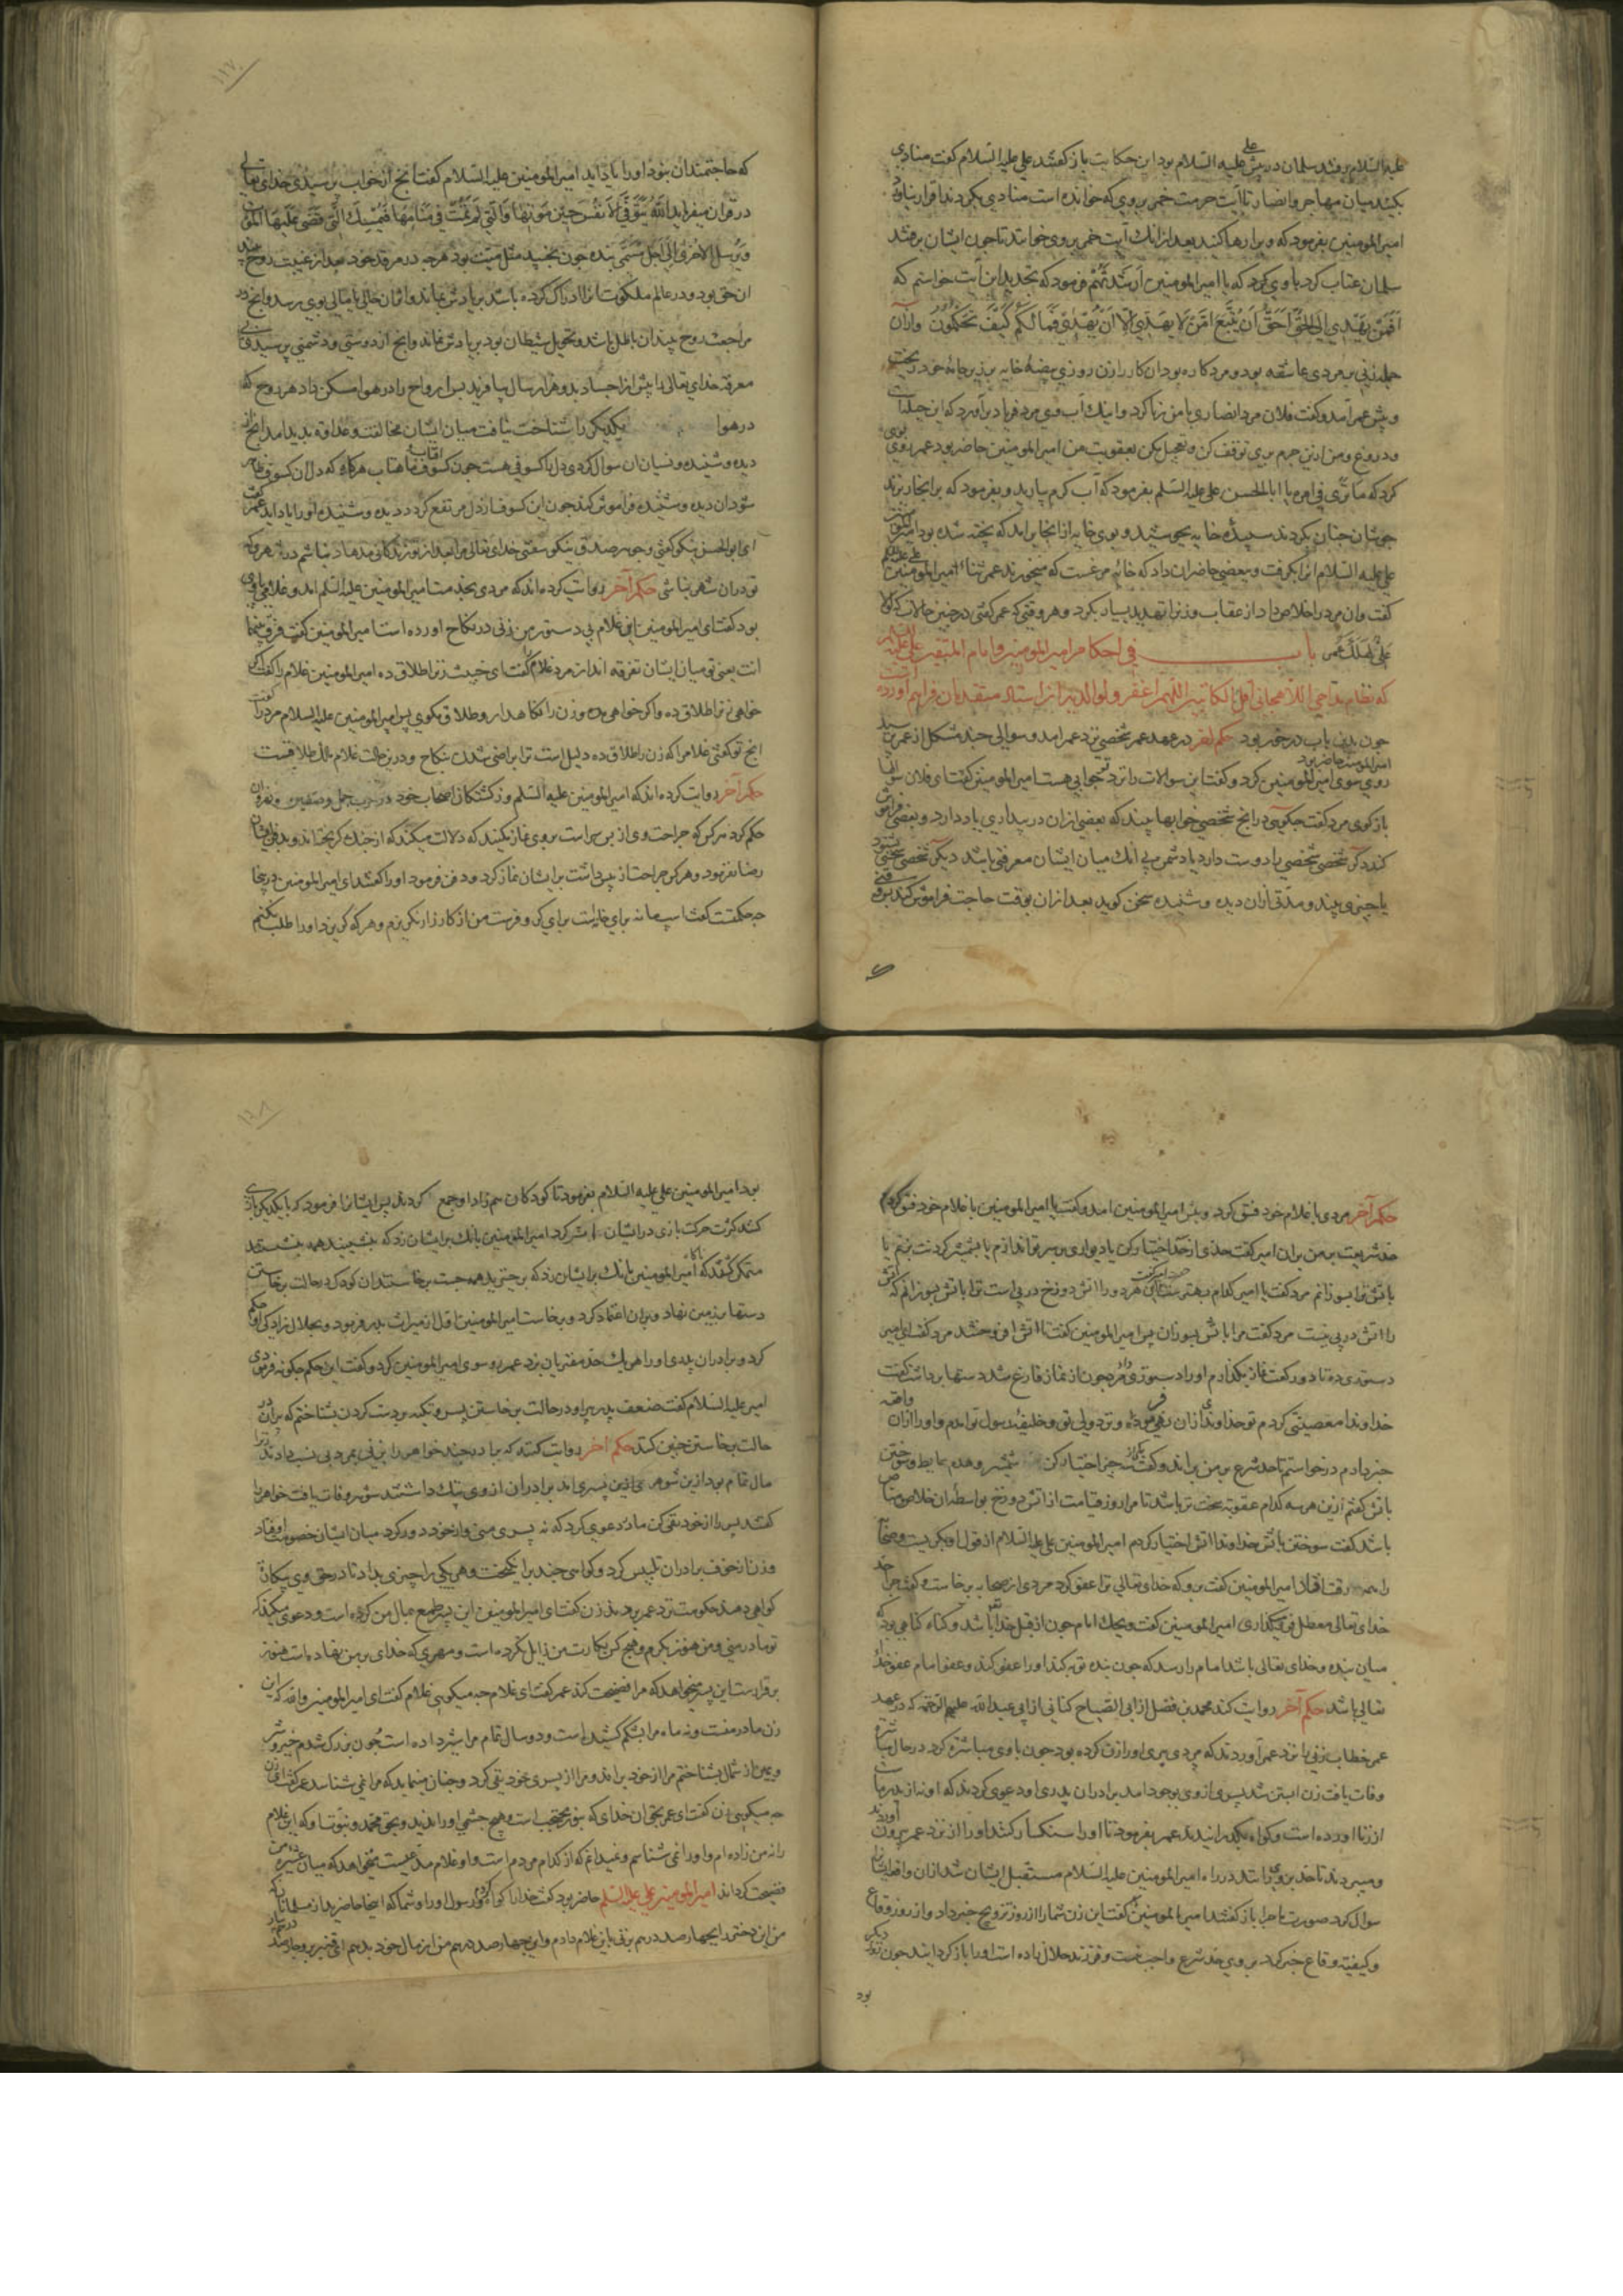 علیه السلام برفتند سلمان در پیش علی علیه السلام بود این حکایت باز گفتند علی علیه السلام گفت منادی
بکنید میان مهاجر و انصار تا آیت حرمت خمر بر وی که خوانده است منادی بکردند اقرار نیاوردند
امیر المومنین بفرمود که ویرا رها کنند بعد از انک آیت خمر بر وی خوانند تا چون ایشان برفتند
سلمان عتاب کرد با وی کرد که یا امیر المومنین ارشدتهم فرمود که تجدید این آیت خواستم که
اَفَمَنْ يَهْدِي اِلَى الْحَقِّ اَحَقُّ اَنْ يُتَّبَعَ اَمَّنْ لَا يَهِدِّي اِلَّا اَنْ يُهْدٰى فَمَا لَكُمْ كَيْفَ تَحْكُمُونَ وازان
جمله زنی بر مردی عاشقه بود و مرد کاره بود ان کار را زن روزی بیضهٔ خایه بر زیر جامهٔ خود ریخت
و پیش عمر آمد و گفت فلان مرد انصاری با من زنا کرد و اینک آب وی مرد فریاد برآورد که این حیلت است
و دروغ و من ازین جرم بری توقف کن و تعجیل مکن بعقوبت من امیر المومنین حاضر بود عمر روی بوی
کرد که ما تری فی امره یا ابا الحسن علی علیه السلم بفرمود که آب گرم بیارید و بفرمود که برانجا ریزند
چون شان چنان بکردند سپیدهٔ خایه بجوشید و بوی خایه از انجا برامد که پخته شده بود امیر المومنین
علی علیه السلام انرا بگرفت و ببعضی حاضران داد که خایه مرغست که میخورند عمر ثناء امیر المومنین علی علیه السلم
گفت وان مرد را خلاص داد از عقاب و زنرا تهدید بسیار بکرد و هر وقتی که عمر گفتی در چنین حالات که لولا
علیٌّ لهلک عمر باب فی احکام امیر المومنین و امام المتقین علی علیه السلام
چون بدین باب در خور بود حکم اخر در عهد عمر شخصی نزد عمر امد و سوالی چند مشکل از عمر بپرسید
روی سوی امیر المومنین کرد و گفتا این سوالات را نزد تو جوابی هست امیر المومنین گفت ای فلان سوالها
امیر المومنین حاضر بود
باز گوی مرد گفت چگویی در انچ شخصی خوابها بیند که بعضی ازان در بیداری یاد دارد و بعضی فراموش
کند دیگر شخصی شخصی را دوست دارد یا دشمن بی انک میان ایشان معرفتی باشد دیگر شخصی سخنی بشنود
یا چیزی بیند و مدتی ازان دیده و شنیده سخن گوید بعد ازان بوقت حاجت فراموش کند بر وقتی
که حاجتمند ان نبود او را یاد اید امیر المومنین علیه السلام گفت انچ از خواب پرسیدی خدای تعالی
در قران میفراید اَللّٰهُ يَتَوَفَّى الْاَنْفُسَ حِينَ مَوْتِهَا وَالَّتِي لَمْ تَمُتْ فِي مَنَامِهَا فَيُمْسِكُ الَّتِي قَضَى عَلَيْهَا الْمَوْتَ
وَيُرْسِلُ الْاُخْرٰى اِلَى اَجَلٍ مُسَمًّى بنده چون بخسبد مثل میت بود هرچه در مرقد خود بعد از غیبت روح بیند
ان حق بود و در عالم ملکوت انرا ادراک کرده باشد بر یادش بماند و انان خالی یا مثالی بوی رسد و انچ در
مراجعت روح بیند ان باطل باشد و تخویل شیطان بود بر یادش نماند و انچ از دوستی و دشمنی پرسیدی بی
معرفة خدای تعالی پیش از اجساد بدو هزار سال بیافرید پس ارواح را در هوا مسکن داد هر روح که
در هوا یکدیگر را شناخت نیافت میان ایشان مخالفت و عداوة پدید امد انچ از
دیده و شنیده و نسیان ان سوال کردی دل را کسوفی هست چون کسوف افتاب ماهتاب هرگاه که دل ان کسوف ظاهر
شود ان دیده و شنیده فراموش کند چون این کسوف از دل مرتفع گردد دیده و شنیده او را یاد اید عمر گفت
ای ابو الحسن نیکو گفتی و جوهر صدق نیکو سفتی خدای تعالی مرا بعد از تو زندگانی مدهاد نباشم در شهر که
تو دران شهر نباشی حکم آخر روایت کرده اند که مردی بخدمت امیر المومنین علیه السلم امد و غلامی با وی
بود گفت ای امیر المومنین این غلام بی دستور من زنی در نکاح اورده است امیر المومنین گفت فرق بینهما
انت یعنی تو میان ایشان تفرقه انداز مرد غلام را گفت ای خبیث زنرا طلاق ده امیر المومنین غلام را گفت اگر
خواهی زنرا طلاق ده و اگر خواهی مده و زن را نکاه دار و طلاق مگوی پس امیر المومنین علیه السلام مرد را گفت
انچ تو گفتی غلام را که زن را طلاق ده دلیل است ترا براضی شدن بنکاح و درین حالت غلام مالک طلاقست
حکم آخر روایت کرده اند که امیر المومنین علیه السلم در کشتگان اصحاب خود در حرب جمل و صفین و نهروان
حکم کرد هر کس که جراحت وی از پس سر است بر وی نماز نکنند که دلالت میکند که از جنک گریخته اند و بدفن ایشان
رضا نفرمود و هر کس جراحت از پیش داشت بر ایشان نماز کرد و دفن فرمود او را گفتند ای امیر المومنین در ینجا
چه حکمتست گفت اسپ مانه برای غارت است برای کر و فرست من از کارزار نگریزم و هر که گریزد او را طلب نکنم
حکم آخر مردی با غلام خود فسق کرد و پیش امیر المومنین امد و گفت یا امیر المومنین با غلام خود فسق کردم
حد شریعت بر من بران امیر گفت حدی از حد اختیار کن یا دیواری بر سر تو اندازم یا بشمشیر گردنت بزنم یا
باتش ترا بسوزانم مرد گفت یا امیر کدام بهتر هر دو را اتش دوزخ در پی است ترا باتش بسوزانم که اتش
را اتش در پی نیست مرد گفت مرا باتش بسوزان پس امیر المومنین گفت تا اتش افروختند مرد گفت ای امیر
دستوری ده تا دو رکعت نماز بگذارم او را دستوری داد مرد چون از نماز فارغ شد دستها برداشت گفت
خداوندا معصیتی کردم تو خداوندی ازان نهی فرمودهٔ و نزد ولی تو و خلیفهٔ رسول تو امدم و او را ازان واقعه
خبر دادم درخواستم تا حد شرع بر من براند و گفت چیز اختیار کن شمشیر و هدم حایط و سوختن
باتش گفتم ازین هر سه کدام عقوبت سخت تر باشد تا مرا روز قیامت از اتش دوزخ بواسطهٔ ان خلاص مناص
باشد گفت سوختن باتش خداوندا اتش اختیار کردم امیر المومنین علی علیه السلام از قول او بگریست و صحابه
را رقت افتاد امیر المومنین گفت برو که خدای تعالی ترا عفو کرد مردی از صحابه برخاست و گفت چرا حد
خدای تعالی معطل فرو میگذاری امیر المومنین گفت ویحک امام چون از قبل خدا باشد و گناه گناهی بود که
میان بنده و خدای تعالی باشد امام را رسد که چون بنده توبه کند او را عفو کند و عفو امام عفو خدای
تعالی باشد حکم آخر روایت کند محمد بن فضل از ابی الصباح کنانی از ابی عبد الله علیهم الرحمة که در عهد
عمر خطاب زنی را نزد عمر آوردند که مردی پیری او را زن کرده بود چون با وی مباشرة کرد در حال مباشرة
وفات یافت زن ابستن شد پسری ازوی بوجود امد برادران پدری او دعوی کردند که او نه از پدر ماست
از زنا اورده است و گواه بگذرانیدند عمر بفرمود تا او را سنگسار کنند او را از نزد عمر بیرون آوردند
و میبردند تا حد بر وی رانند در راه امیر المومنین علیه السلام مستقبل ایشان شد ازان واقعه ایشان
سوال کرد صورت ماجرا باز گفتند امیر المومنین گفت این زن شما را از روز تزویج خبر داد و از روز وقاع
و کیفیة وقاع خبر کرد بر وی حد شرع واجب نیست و فرزند حلال زاده است او را باز گردانید چون روز دیگر
بود
بود امیر المومنین علی علیه السلام بفرمود تا کودکان هم زاد او جمع کردند پس ایشانرا فرمود که با یکدیگر بازی
کنند کثرت حرکت بازی در ایشان اثر کرد امیر المومنین بانک بر ایشان زد که بنشینید همه بنشستند
متمکن گشتند که ناگاه امیر المومنین بانک بر ایشان زد که برخیزید همه جست برخاستند ان کودک در حالت برخاستن
دستها بر زمین نهاد و بران اعتماد کرد و برخاست امیر المومنین اول از میراث پدر فرمود و بحلال زادگی او حکم
کرد و برادران پدری او را هر یک حد مفتریان بزد عمر رو سوی امیر المومنین کرد و گفت این حکم چگونه فرمودی
امیر علیه السلام گفت ضعف پدر پیر او در حالت برخاستن پسر و تکیه بر دست کردن بشناختم که پیران
حالت برخاستن چنین کنند حکم اخر روایت کنند که برادر چند خواهر را بزنی بمرد بی نسب دادند زیرا
مال تمام بود ازین شوهر پسری اند برادران ازوی ننک داشتند شوهر وفات یافت خواهر را
گفتند پسر را از خود نفی کن مادر دعوی کرد که نه پسری منی و از خود دور کرد میان ایشان خصومت اوفتاد
و زن از خوف برادران تلبیس کرد و گواهی چند برانگیخت و هر یکی را چیزی بداد تا در حق وی بیگانه
گواهی دهند حکومت نزد عمر بردند زن گفت ای امیر المومنین این پسر طمع بمال من کرده است و دعوی میکند که
تو مادر منی و من هنوز بکرم و هیچ کس بکارت من زایل نکرده است و مهری که خدای بر من نهاده است هنوز
برقرارست این پسر میخواهد که مرا فضیحت کند عمر گفت ای غلام چه میگویی غلام گفت ای امیر المومنین والله که این
زن مادر منست و نه ماه مرا بشکم کشیده است و دو سال تمام مرا شیر داده است چون بزرک شدم خیر و شر
و یمین از شمال بشناختم مرا از خود براند و مرا از پسری خود نفی کرد و چنان مینماید که مرا نمی شناسد عمر گفت ای زن
چه میگویی زن گفت ای عمر بحق ان خدای که بنور محتجب است و هیچ چشمی او را ندید و بحق محمد و نبوت او که این غلام
را نه من زاده ام و او را نمی شناسم و نمیدانم که از کدام مردم است و او غلام مدعیست میخواهد که میان عشیره من
فضیحت گرداند امیر المومنین علی علیه السلم حاضر بود گفت خدا را گواه کردم و رسول او را و شما که اینجا حاضرید از مسلمانان که
من این دختر را بچهارصد درهم بزنی باین غلام دادم و این چهارصد درهم من از مال خود بدهم ای قنبر برو چهارصد درهم بیار